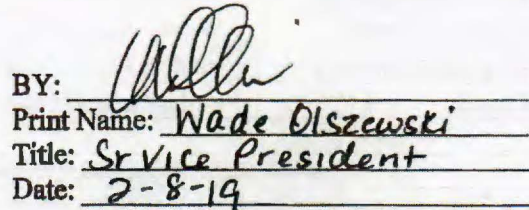 BY:
Print Name: Wade Olszewski
Title: Sr Vice President
Date: 2-8-19